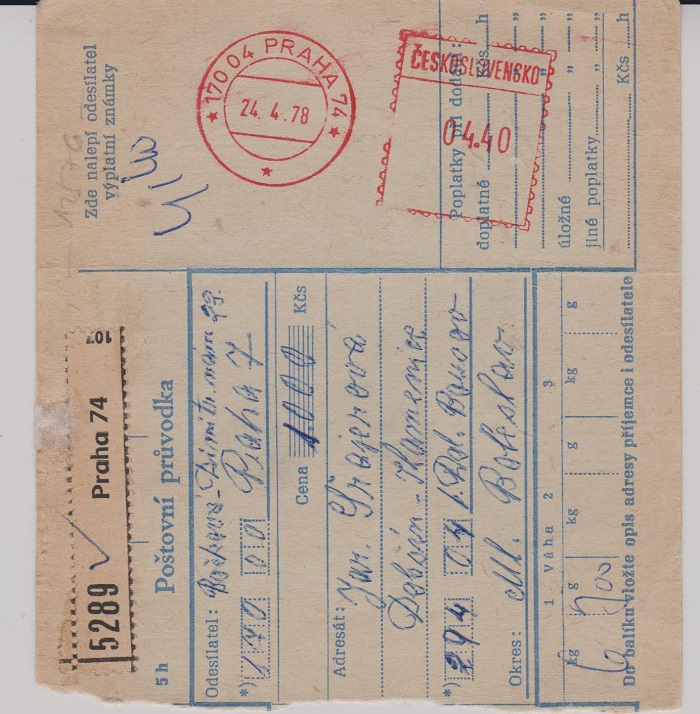 Zde nalepí odesílatel
výplatní známky
170 04 PRAHA 74
24. 4. 78
ČESKOSLOVENSKO
04.40
Poplatky při dodání:
doplatné Kčs h
" "
" "
úložné " "
jiné poplatky " "
Kčs h
5289
Praha 74
5 h
Poštovní průvodka
Odesílatel:
*) 170 00 Praha 7
Cena 1000 Kčs
Adresát: Jar.
*) 294 04
Okres: Ml. Boleslav
1 Váha 2 3
kg g kg g kg g
Do balíku vložte opis adresy příjemce i odesílatele